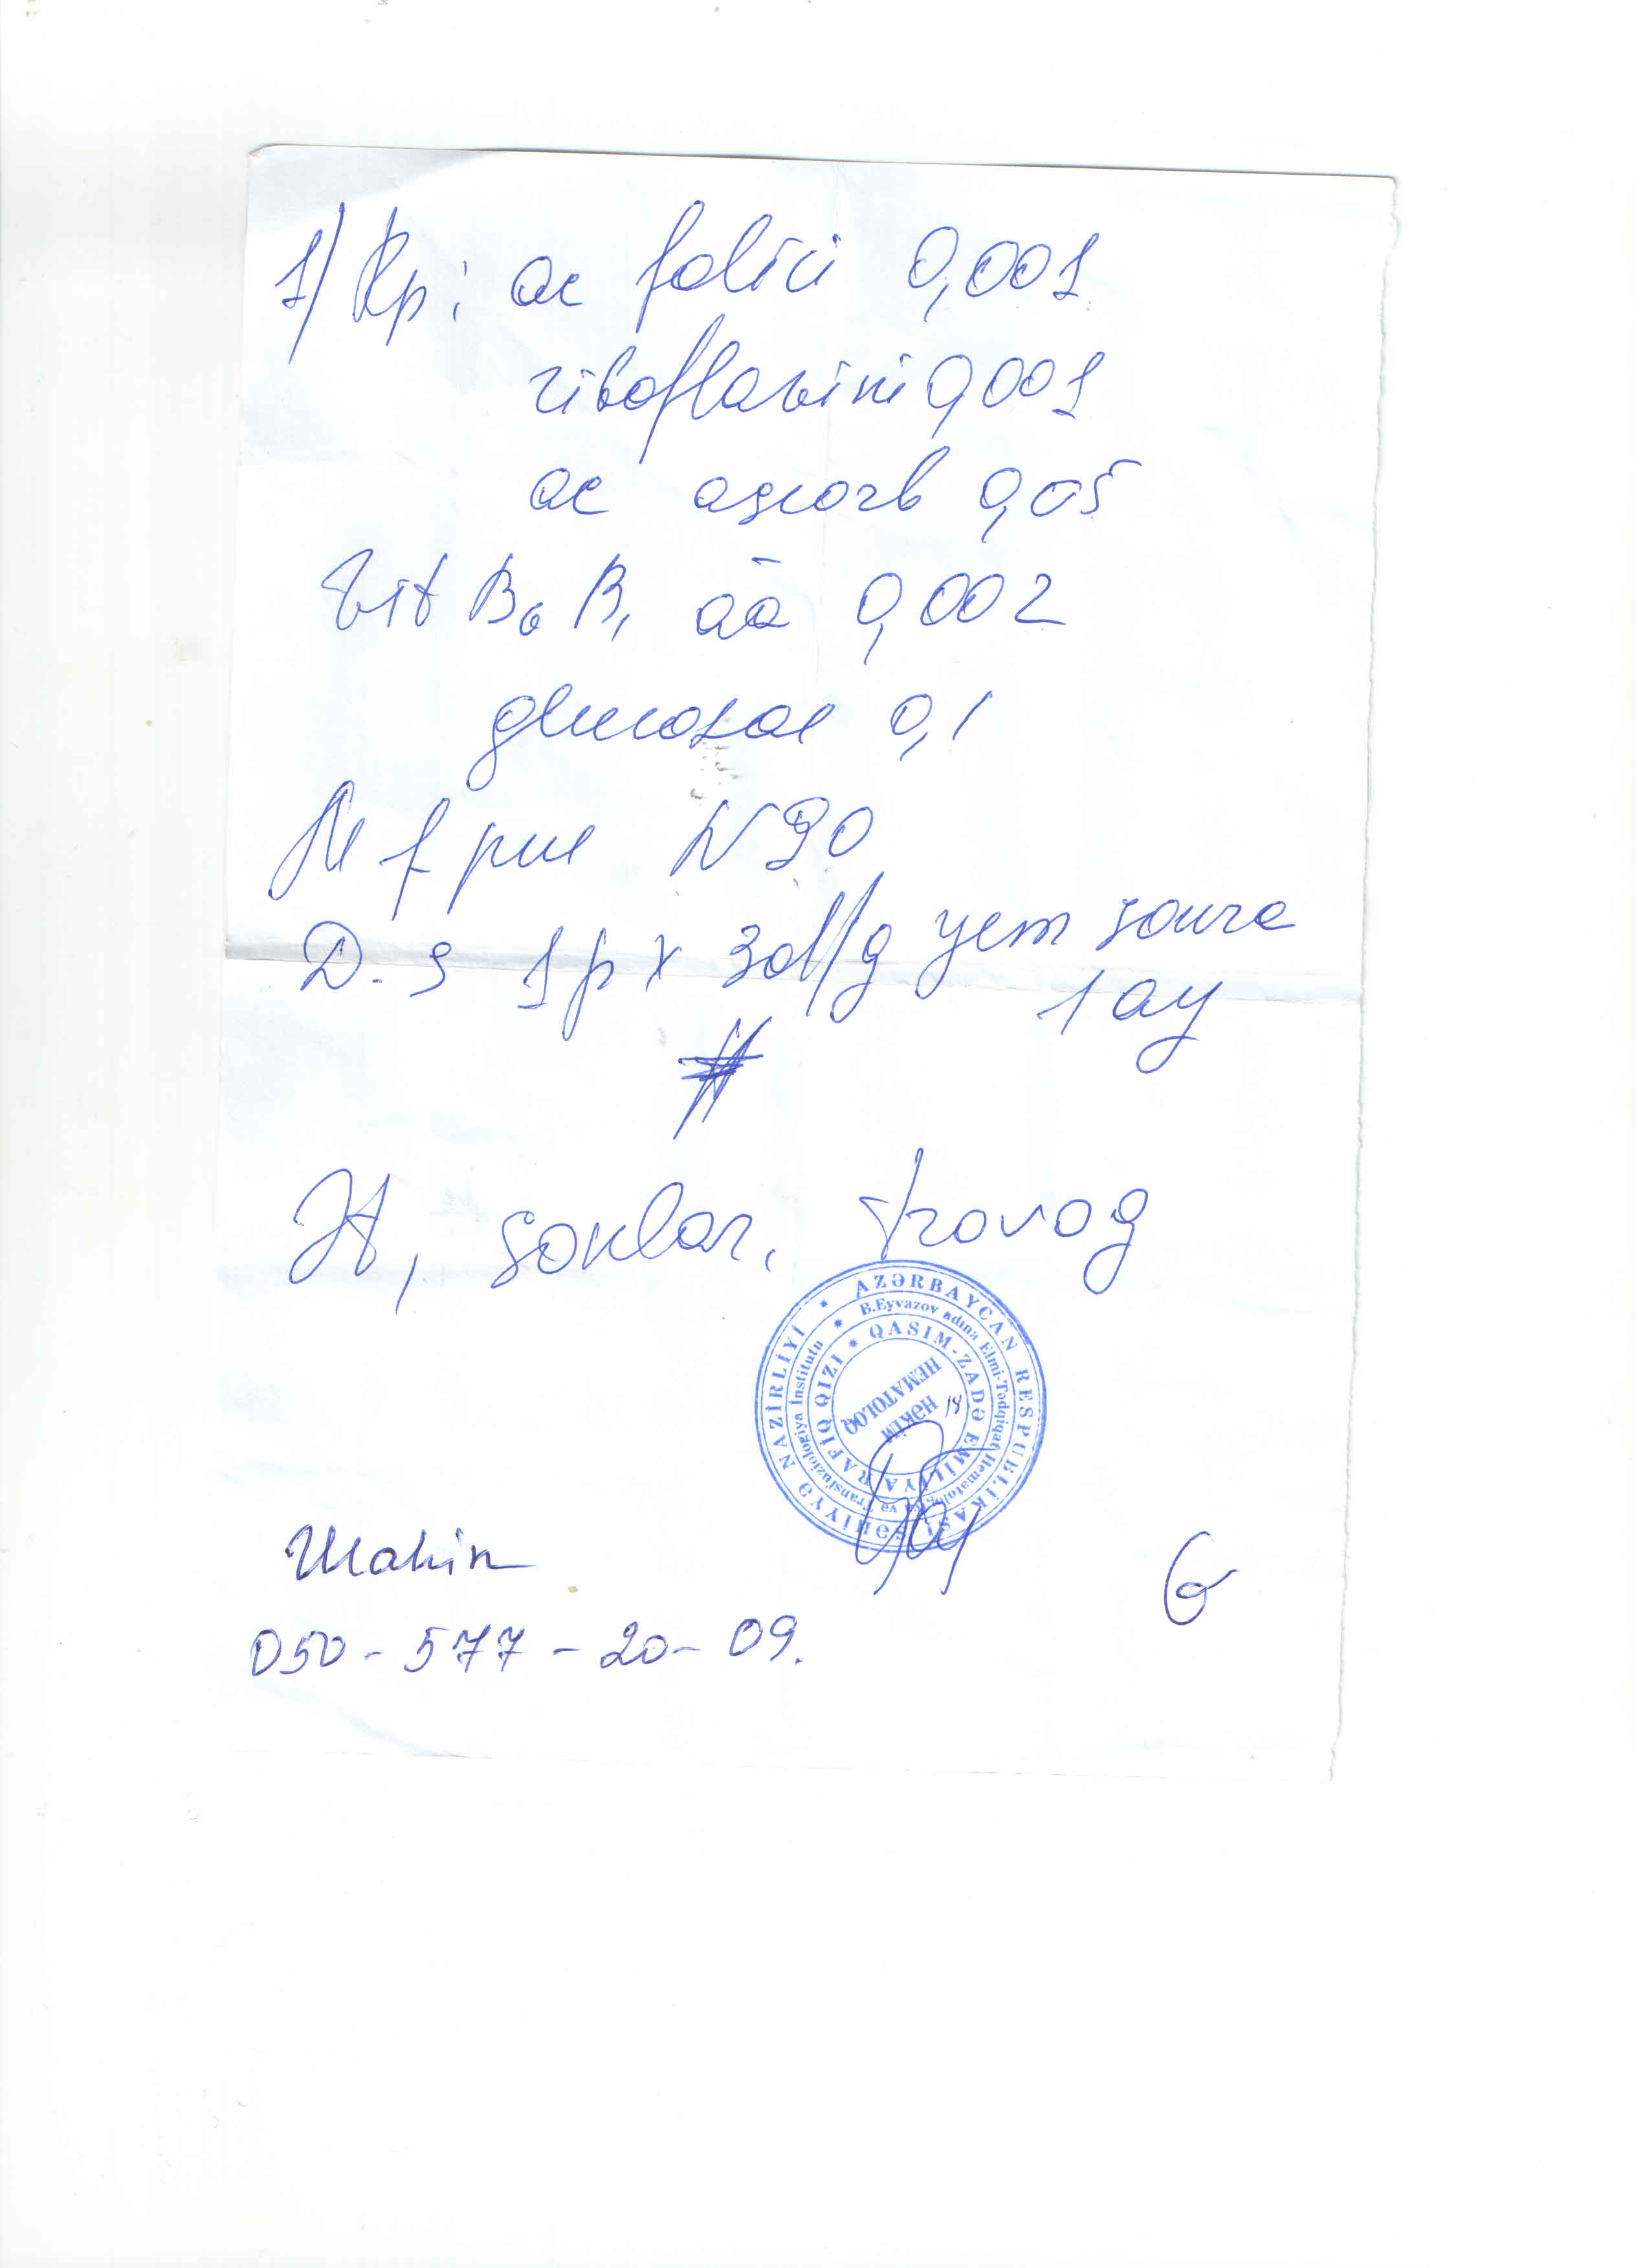 1) Rp: ac folici 0,001
riboflavini 0,001
ac ascorb 0,05
Vit B6 B1 āā 0,002
glucosae 0,1
M f pul N90
D. S 1p x 3d/g yem sonra
1 ay
Ət, soklar, tvorog
AZƏRBAYCAN RESPUBLİKASI SƏHİYYƏ NAZİRLİYİ
B.Eyvazov adına Elmi-Tədqiqat Hematologiya və Transfuziologiya İnstitutu
QASIM-ZADƏ EMİLİYA RAFİQ QIZI
HƏKİM
HEMATOLOQ
18
Mahin
050-577-20-09.